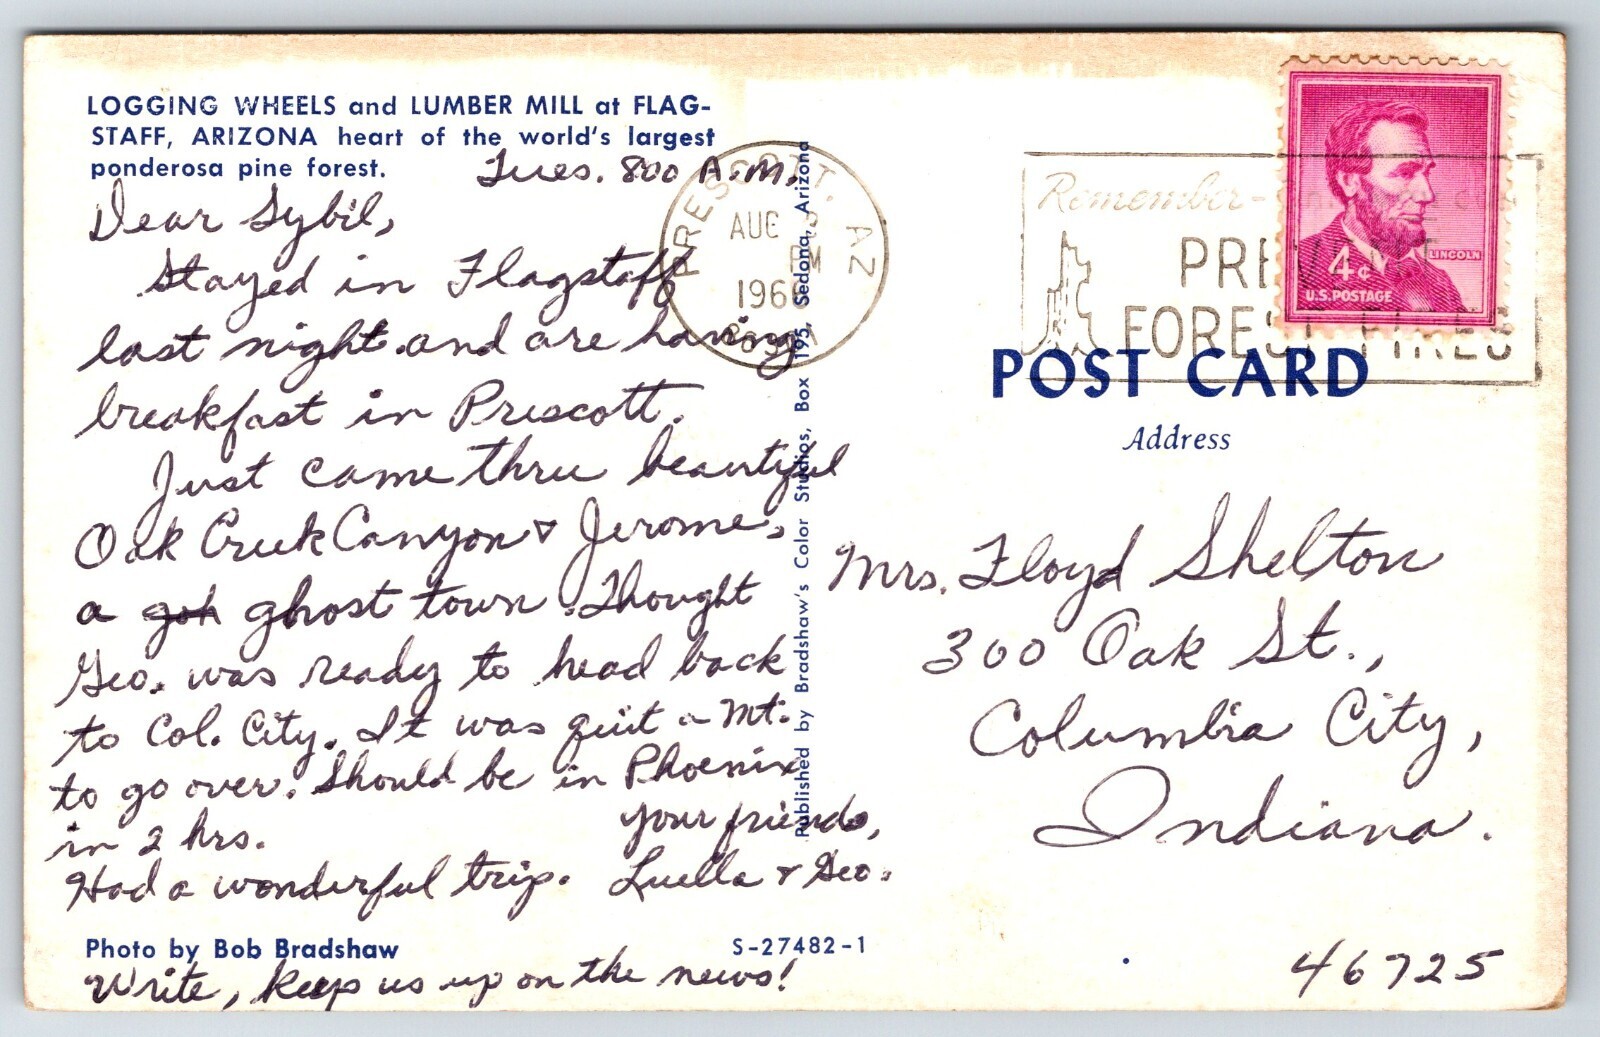 LOGGING WHEELS and LUMBER MILL at FLAG-
STAFF, ARIZONA heart of the world's largest
ponderosa pine forest.
Tues. 800 A.M.
Dear Sybil,
Stayed in Flagstaff
last night and are having
breakfast in Prescott.
Just came thru beautiful
Oak Creek Canyon & Jerome,
a goh ghost town. Thought
Geo. was ready to head back
to Col. City. It was quit a Mt.
to go over. Should be in Phoenix
in 2 hrs.
Your friends,
Had a wonderful trip. Luella & Geo.
Photo by Bob Bradshaw
S-27482-1
Write, keep us up on the news!
Published by Bradshaw's Color Studios, Box 195, Sedona, Arizona
PRESCOTT, AZ
AUG
PM
1966
Remember-
PREVENT
FOREST FIRES
LINCOLN
4¢
U.S. POSTAGE
POST CARD
Address
Mrs. Floyd Shelton
300 Oak St.,
Columbia City,
Indiana.
46725